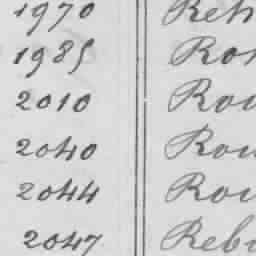 1970 Reh
1985 Ron
2010 Rou
2040 Rou
2044 Rou
2047 Reb